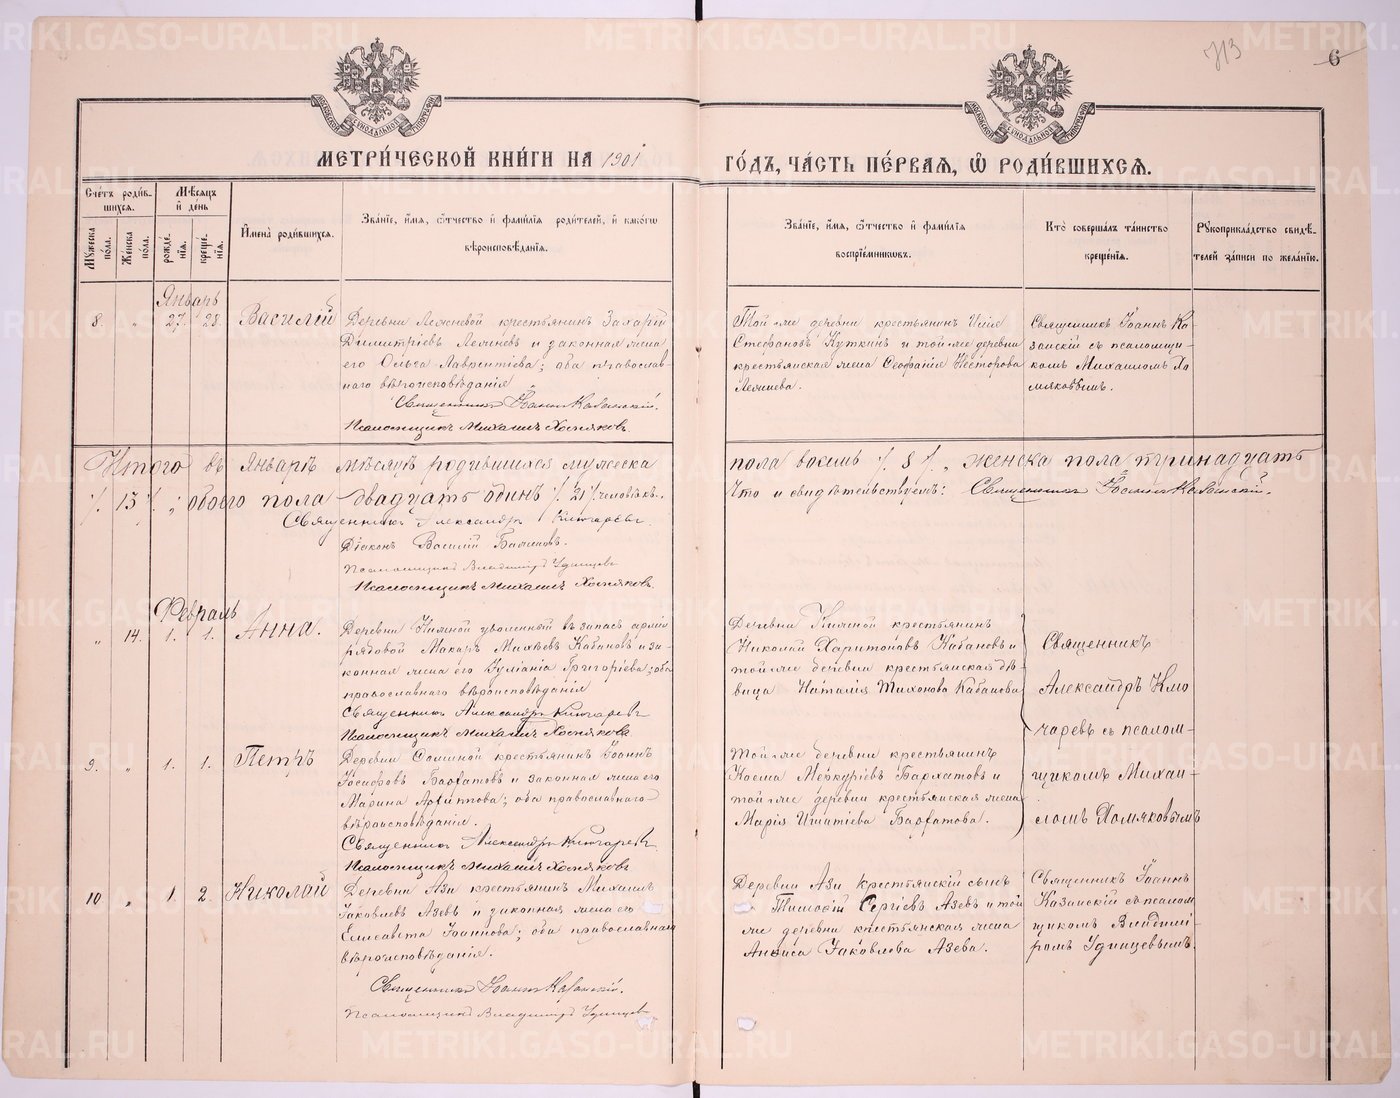 713
6
МЕТРИ́ЧЕСКОЙ КНИ́ГИ НА 1901 ГО́ДЪ, ЧА́СТЬ ПЕ́РВАЯ, Ѡ҆ РОДИ́ВШИХСЯ.
Сче́тъ роди́в-
шихся.
Му́жеска пола.
Же́нска пола.
Мѣ́сяцъ
и҆ де́нь
рожде́-
нїя.
креще-
нїя.
И҆мена̀ роди́вшихся.
Зва́нїе, и҆́мя, ѻ҆́тчество и҆ фами́лїѧ роди́телей, и҆ како́гѡ
вѣроисповѣ́данїѧ.
Зва́нїе, и҆́мя, ѻ҆́тчество и҆ фами́лїѧ
воспрїе́мниковъ.
Кто̀ соверша́лъ та́инство
креще́нїѧ.
Рꙋкоприкла́дство свидѣ́-
телей за́писи по жела́нїю.
Январь
8. „ 27. 28. Василій
Деревни Лежневой крестьянинъ Захарій
Димитріевъ Лежневъ и законная жена
его Ольга Лаврентіева; оба православ-
наго вѣроисповѣданія
Священникъ Іоаннъ Казанскій.
Псаломщикъ Михаилъ Хомяковъ.
Той же деревни крестьянинъ Илія
Стефановъ Куткинъ и той же деревни
крестьянская жена Стефанія Несторова
Лежнева.
Священникъ Іоаннъ Ка-
занскій съ псаломщи-
комъ Михаиломъ Хо
мяковымъ.
Итого въ Январѣ мѣсяцѣ родившихся мужеска пола восемь /. 8 /. „ женска пола тринадцать
/. 13 /. „ обоего пола двадцать одинъ /. 21 /. человѣкъ.
Что и свидѣтельствуемъ: Священникъ Іоаннъ Казанскій.
Священникъ Александръ
Діаконъ Василій
Псаломщикъ Владиміръ Удинцевъ
Псаломщикъ Михаилъ Хомяковъ.
Февраль
„ 14. 1. 1. Анна.
Деревни уволенный въ запасъ арміи
рядовой Макаръ Михѣевъ Кабановъ и за-
конная жена его Іуліанія Григоріева; оба
православнаго вѣроисповѣданія
Священникъ Александръ
Псаломщикъ Михаилъ Хомяковъ.
Деревни крестьянинъ
Николай Харитоновъ Кабановъ и
той же деревни крестьянская дѣ-
вица Наталія Тихонова Кабанова
Священникъ
Александръ
чаревъ съ псалом-
щикомъ Михаи-
ломъ Хомяковымъ
9. „ 1. 1. Петръ
Деревни крестьянинъ Іоаннъ
Іосифовъ Бархатовъ и законная жена его
Марина Архиппова; оба православнаго
вѣроисповѣданія.
Священникъ Александръ
Псаломщикъ Михаилъ Хомяковъ
Той же деревни крестьянинъ
Косма Меркуріевъ Бархатовъ и
той же деревни крестьянская жена
Марія Игнатіева Бархатова.
10 „ 1. 2. Николай
Деревни Ази крестьянинъ Михаилъ
Іаковлевъ Азевъ и законная жена его
Елисавета Іоаннова; оба православнаго
вѣроисповѣданія.
Священникъ Іоаннъ Казанскій.
Псаломщикъ Владиміръ Удинцевъ
Деревни Ази крестьянскій сынъ
Тимоѳей Сергіевъ Азевъ и той
же деревни крестьянская жена
Анфиса Іаковлева Азева.
Священникъ Іоаннъ
Казанскій съ псалом
щикомъ Владимі
ромъ Удинцевымъ.
METRIKI.GASO-URAL.RU